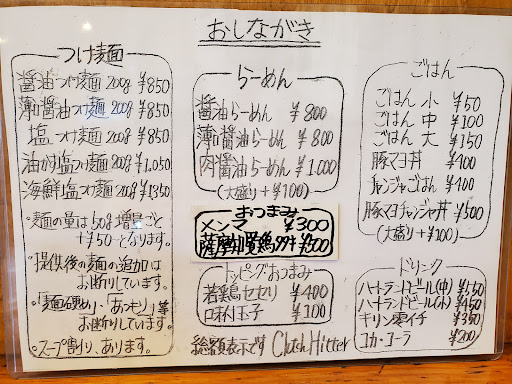 おしながき
つけ麺
醤油つけ麺 200g ¥850
薄口醤油つけ麺 200g ¥850
塩つけ麺 200g ¥850
油かけ塩つけ麺 200g ¥1,050
海鮮塩つけ麺 200g ¥1350
・麺の量は50g増量ごと
+¥50となります。
・提供後の麺の追加は
お断りしています。
・「麺硬め」・「あつもり」等
お断りしています。
・スープ割り、あります。
らーめん
醤油らーめん ¥800
薄口醤油らーめん ¥800
肉醤油らーめん ¥1,000
(大盛り+¥100)
おつまみ
メンマ ¥300
薩摩知覧鶏タタキ ¥500
トッピングおつまみ
若鶏セセリ ¥400
味玉子 ¥100
総額表示です Clutch Hitter
ごはん
ごはん 小 ¥50
ごはん 中 ¥100
ごはん 大 ¥150
豚マヨ丼 ¥400
チャンジャごはん ¥400
豚マヨチャンジャ丼 ¥500
(大盛り+¥100)
ドリンク
ハートランドビール(中)
ハートランドビール(小) ¥450
キリン零イチ ¥350
コカ・コーラ ¥200